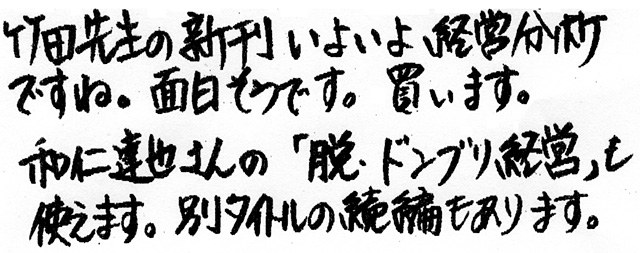 竹田先生の新刊いよいよ経営分析
ですね。面白そうです。買います。
和仁達也さんの「脱・ドンブリ経営」も
使えます。別タイトルの続編もあります。